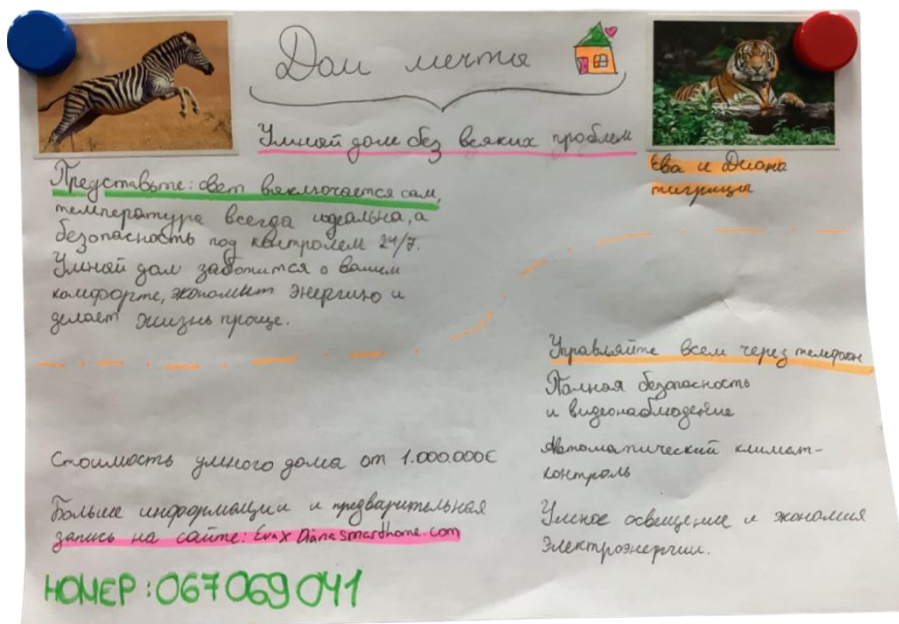 Дом мечта
Умной дом без всяких проблем
Ева и Диана
тигрицы
Представьте: свет вяключается сам,
температура всегда идеальна, а
безопасность под контролем 24/7.
Умной дом заботится о вашем
комфорте, экономит энергию и
делает жизнь проще.
Управляйте всем через телефон
Полная безопасность
и видеонаблюдение
Автоматический климат-
контроль
Умное освещение и экономия
Электроэнергии.
Стоимость умного дома от 1.000.000€
Больше информации и предварительная
запись на сайте: EvaXDianasmarthome.com
НОМЕР: 067069041